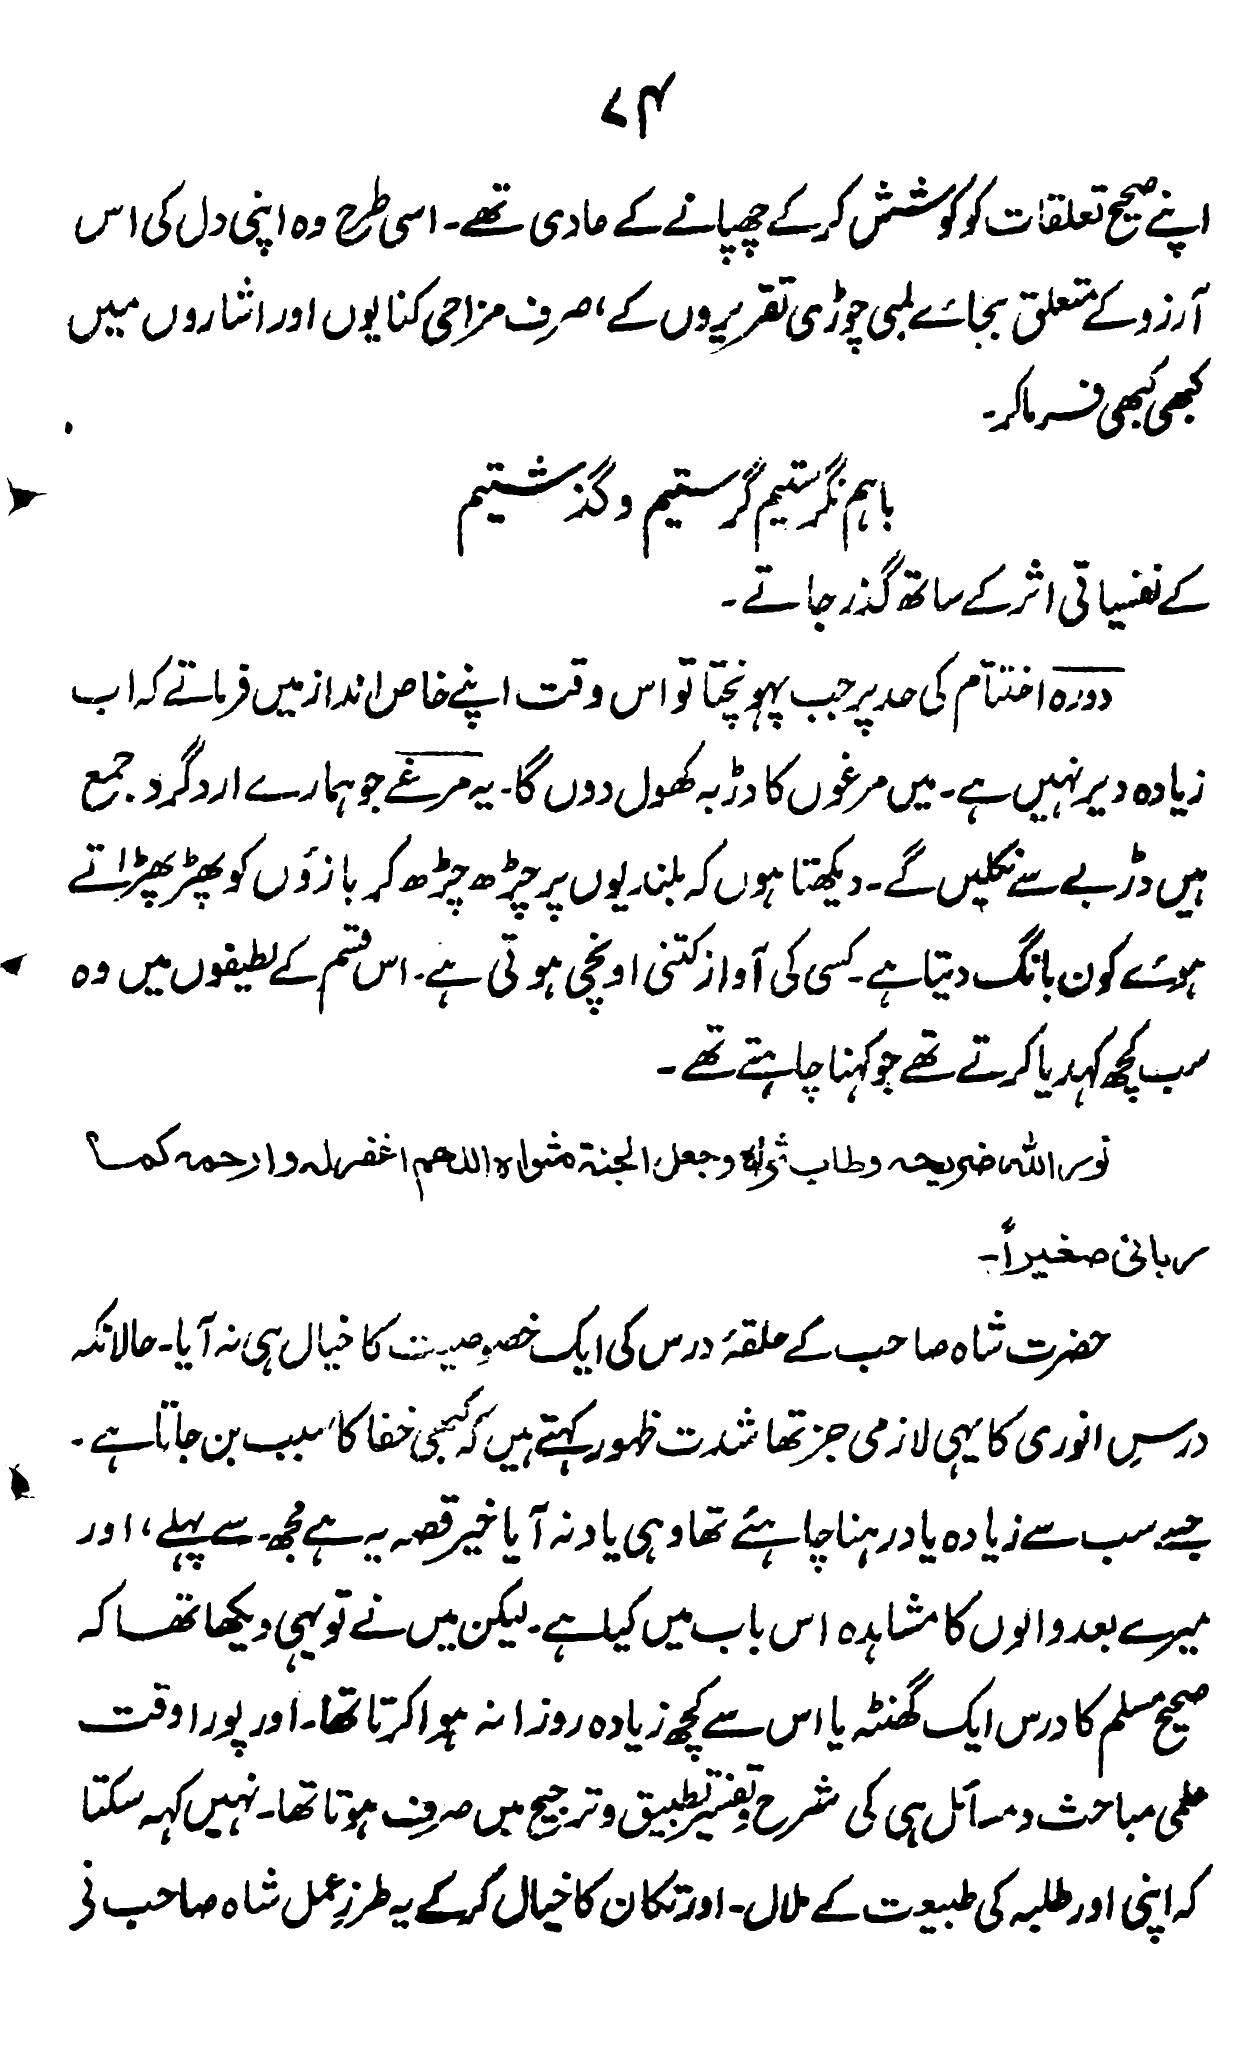 ۷۴
اپنے صحیح تعلقات کو کوشش کر کے چھپانے کے عادی تھے۔ اسی طرح وہ اپنی دل کی اس
آرزو کے متعلق بجائے لمبی چوڑی تقریروں کے، صرف مزاحی کنایوں اور اشاروں میں
کبھی کبھی فرماکر۔
باہم نگرستیم گرستیم و گذشتیم
کے نفسیاتی اثر کے ساتھ گذر جاتے۔
دورہ اختتام کی حد پر جب پہونچتا تو اس وقت اپنے خاص انداز میں فرماتے کہ اب
زیادہ دیر نہیں ہے۔ میں مرغوں کا دڑبہ کھول دوں گا۔ یہ مرغے جو ہمارے اردگرد جمع
ہیں دڑبے سے نکلیں گے۔ دیکھتا ہوں کہ بلندیوں پر چڑھ چڑھ کر بازؤں کو پھڑپھڑاتے
ہوئے کون بانگ دیتا ہے۔ کسی کی آواز کتنی اونچی ہوتی ہے۔ اس قسم کے لطیفوں میں وہ
سب کچھ کہدیا کرتے تھے جو کہنا چاہتے تھے۔
نور اللہ ضریحہ وطاب ثراہ وجعل الجنة مثواہ اللهم اغفرلہ وارحمہ کما
ربانی صغیراً۔
حضرت شاہ صاحب کے حلقۂ درس کی ایک خصوصیت کا خیال ہی نہ آیا۔ حالانکہ
درسِ انوری کا یہی لازمی جز تھا شدت ظہور کہتے ہیں کہ کبھی خفا کا سبب بن جاتا ہے۔
جسے سب سے زیادہ یاد رہنا چاہئے تھا وہی یاد نہ آیا خیر قصہ یہ ہے مجھ سے پہلے، اور
میرے بعد والوں کا مشاہدہ اس باب میں کیا ہے۔ لیکن میں نے تو یہی دیکھا تھا کہ
صحیح مسلم کا درس ایک گھنٹہ یا اس سے کچھ زیادہ روزانہ ہوا کرتا تھا۔ اور پورا وقت
علمی مباحث و مسائل ہی کی شرح و تفسیر تطبیق و ترجیح میں صرف ہوتا تھا۔ نہیں کہہ سکتا
کہ اپنی اور طلبہ کی طبیعت کے ملال۔ اور تکان کا خیال کر کے یہ طرزِ عمل شاہ صاحب نی